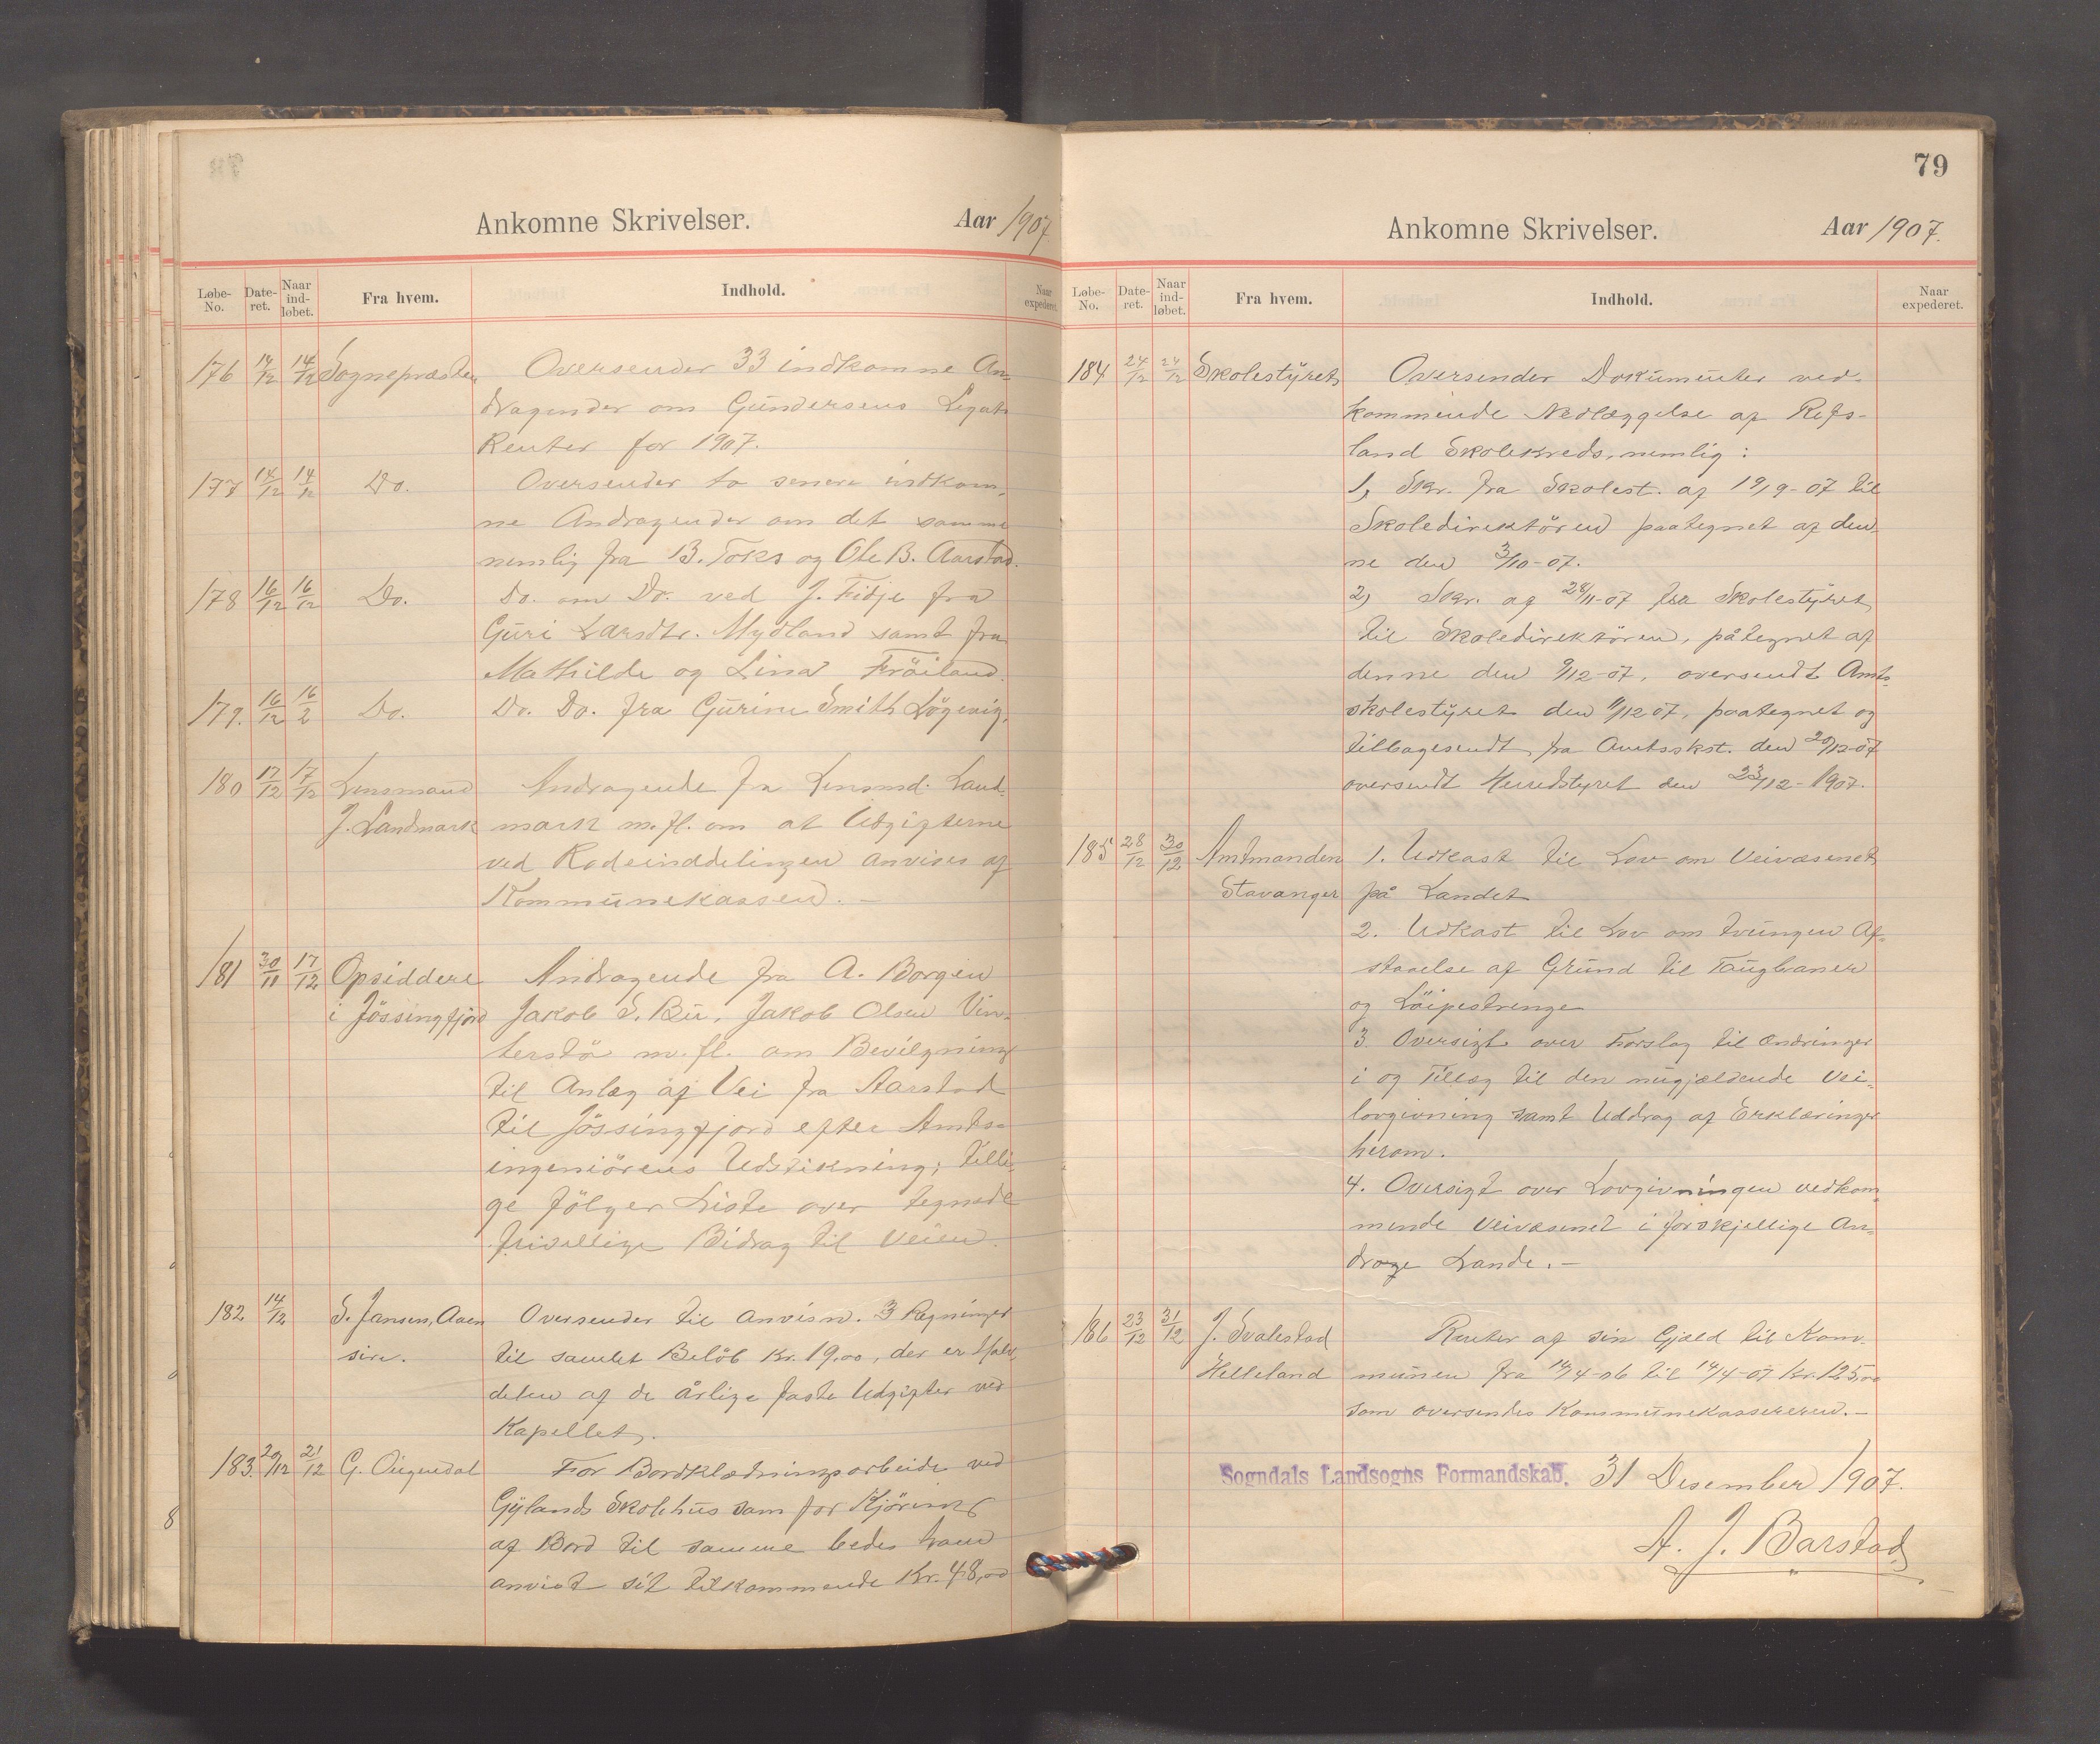 Ankomne Skrivelser. Aar 1907
Løbe-No. Date-ret. Naar ind-løbet. Fra hvem. Indhold. Naar expederet.
176 14/12 14/12 Sognepræsten Oversender 33 indkomne An-
dragender om Gundersens Legats
Renter for 1907.
177 14/12 14/12 Do. Oversender to senere indkom-
ne Andragender om det samme
nemlig fra B. Toks og Ole B. Aarstad.
178 16/12 16/12 Do. Do. om Do. ved J. Fidje fra
Guri Larsdtr. Mydland samt fra
Mathilde og Lina Fröiland.
179. 16/12 16/2 Do. Do. Do. fra Gurine Smith Lögevig.
180 17/12 17/12 Lensmand Andragende fra Lensmd. Land-
J. Landmark mark m.fl. om at Udgifterne
ved Rodeinddelingen anvises af
Kommunekassen. —
181 30/11 17/12 Opsiddere Andragende fra A. Borgen
i Jössingfjord Jakob S. Bu, Jakob Olsen Vin-
terstö m.fl. om Bevilgning
til Anlæg af Vei fra Aarstad
til Jössingfjord efter Amts-
ingeniörens Udstikning; tilli-
ge fölger Liste over tegnede
frivillige Bidrag til Veien.
182 14/12 S. Jansen, Aaen Oversender til anvisn. 3 Regninger
sire. til samlet Belöb Kr. 19,00, der er Halv-
delen af de årlige faste Udgifter ved
Kapellet.
183. 20/12 21/12 G. Ougendal For Bordklædningsarbeide ved
Gylands Skolehus sam for Kjöring
af Bord til samme bedes ham
anvist sit tilkommende Kr. 48,00
79
Ankomne Skrivelser. Aar 1907.
Løbe-No. Date-ret. Naar ind-løbet. Fra hvem. Indhold. Naar expederet.
184 24/12 24/12 Skolestyret Oversender Dokumenter ved-
kommende Nedlæggelse af Refs-
land Skolekreds, nemlig:
1, Skr. fra Skolest. af 19/9-07 til
Skoledirektören paategnet af den-
ne den 3/10-07.
2) Skr. af 28/11-07 fra Skolestyret
til Skoledirektören, påtegnet af
denne den 9/12-07, oversendt Amts-
skolestyret den 11/12 07, paategnet og
tilbagesendt fra Amtsskst. den 20/12-07
oversendt Herredstyret den 23/12-1907.
185 28/12 30/12 Amtmanden 1. Udkast til Lov om Veivæsenet
Stavanger på Landet
2. Udkast til Lov om tvungen Af-
staaelse af Grund til Taugbaner
og Löipestrenge
3. Oversigt over Forslag til ændringer
i og Tillæg til den nugjældende Vei-
lovgivning samt Uddrag af Erklæringer
herom.
4. Oversigt over Lovgivningen vedkom-
mende Veivæsenet i forskjellige An-
drage Lande. —
186 23/12 31/12 J. Svalestad Renter af sin Gjæld til Kom-
Helleland munen fra 14/4-06 til 14/4-07 Kr. 125,00
som oversendes Kommunekassereren. —
Sogndals Landsogns Formandskab, 31 Desember 1907.
A. J. Barstad